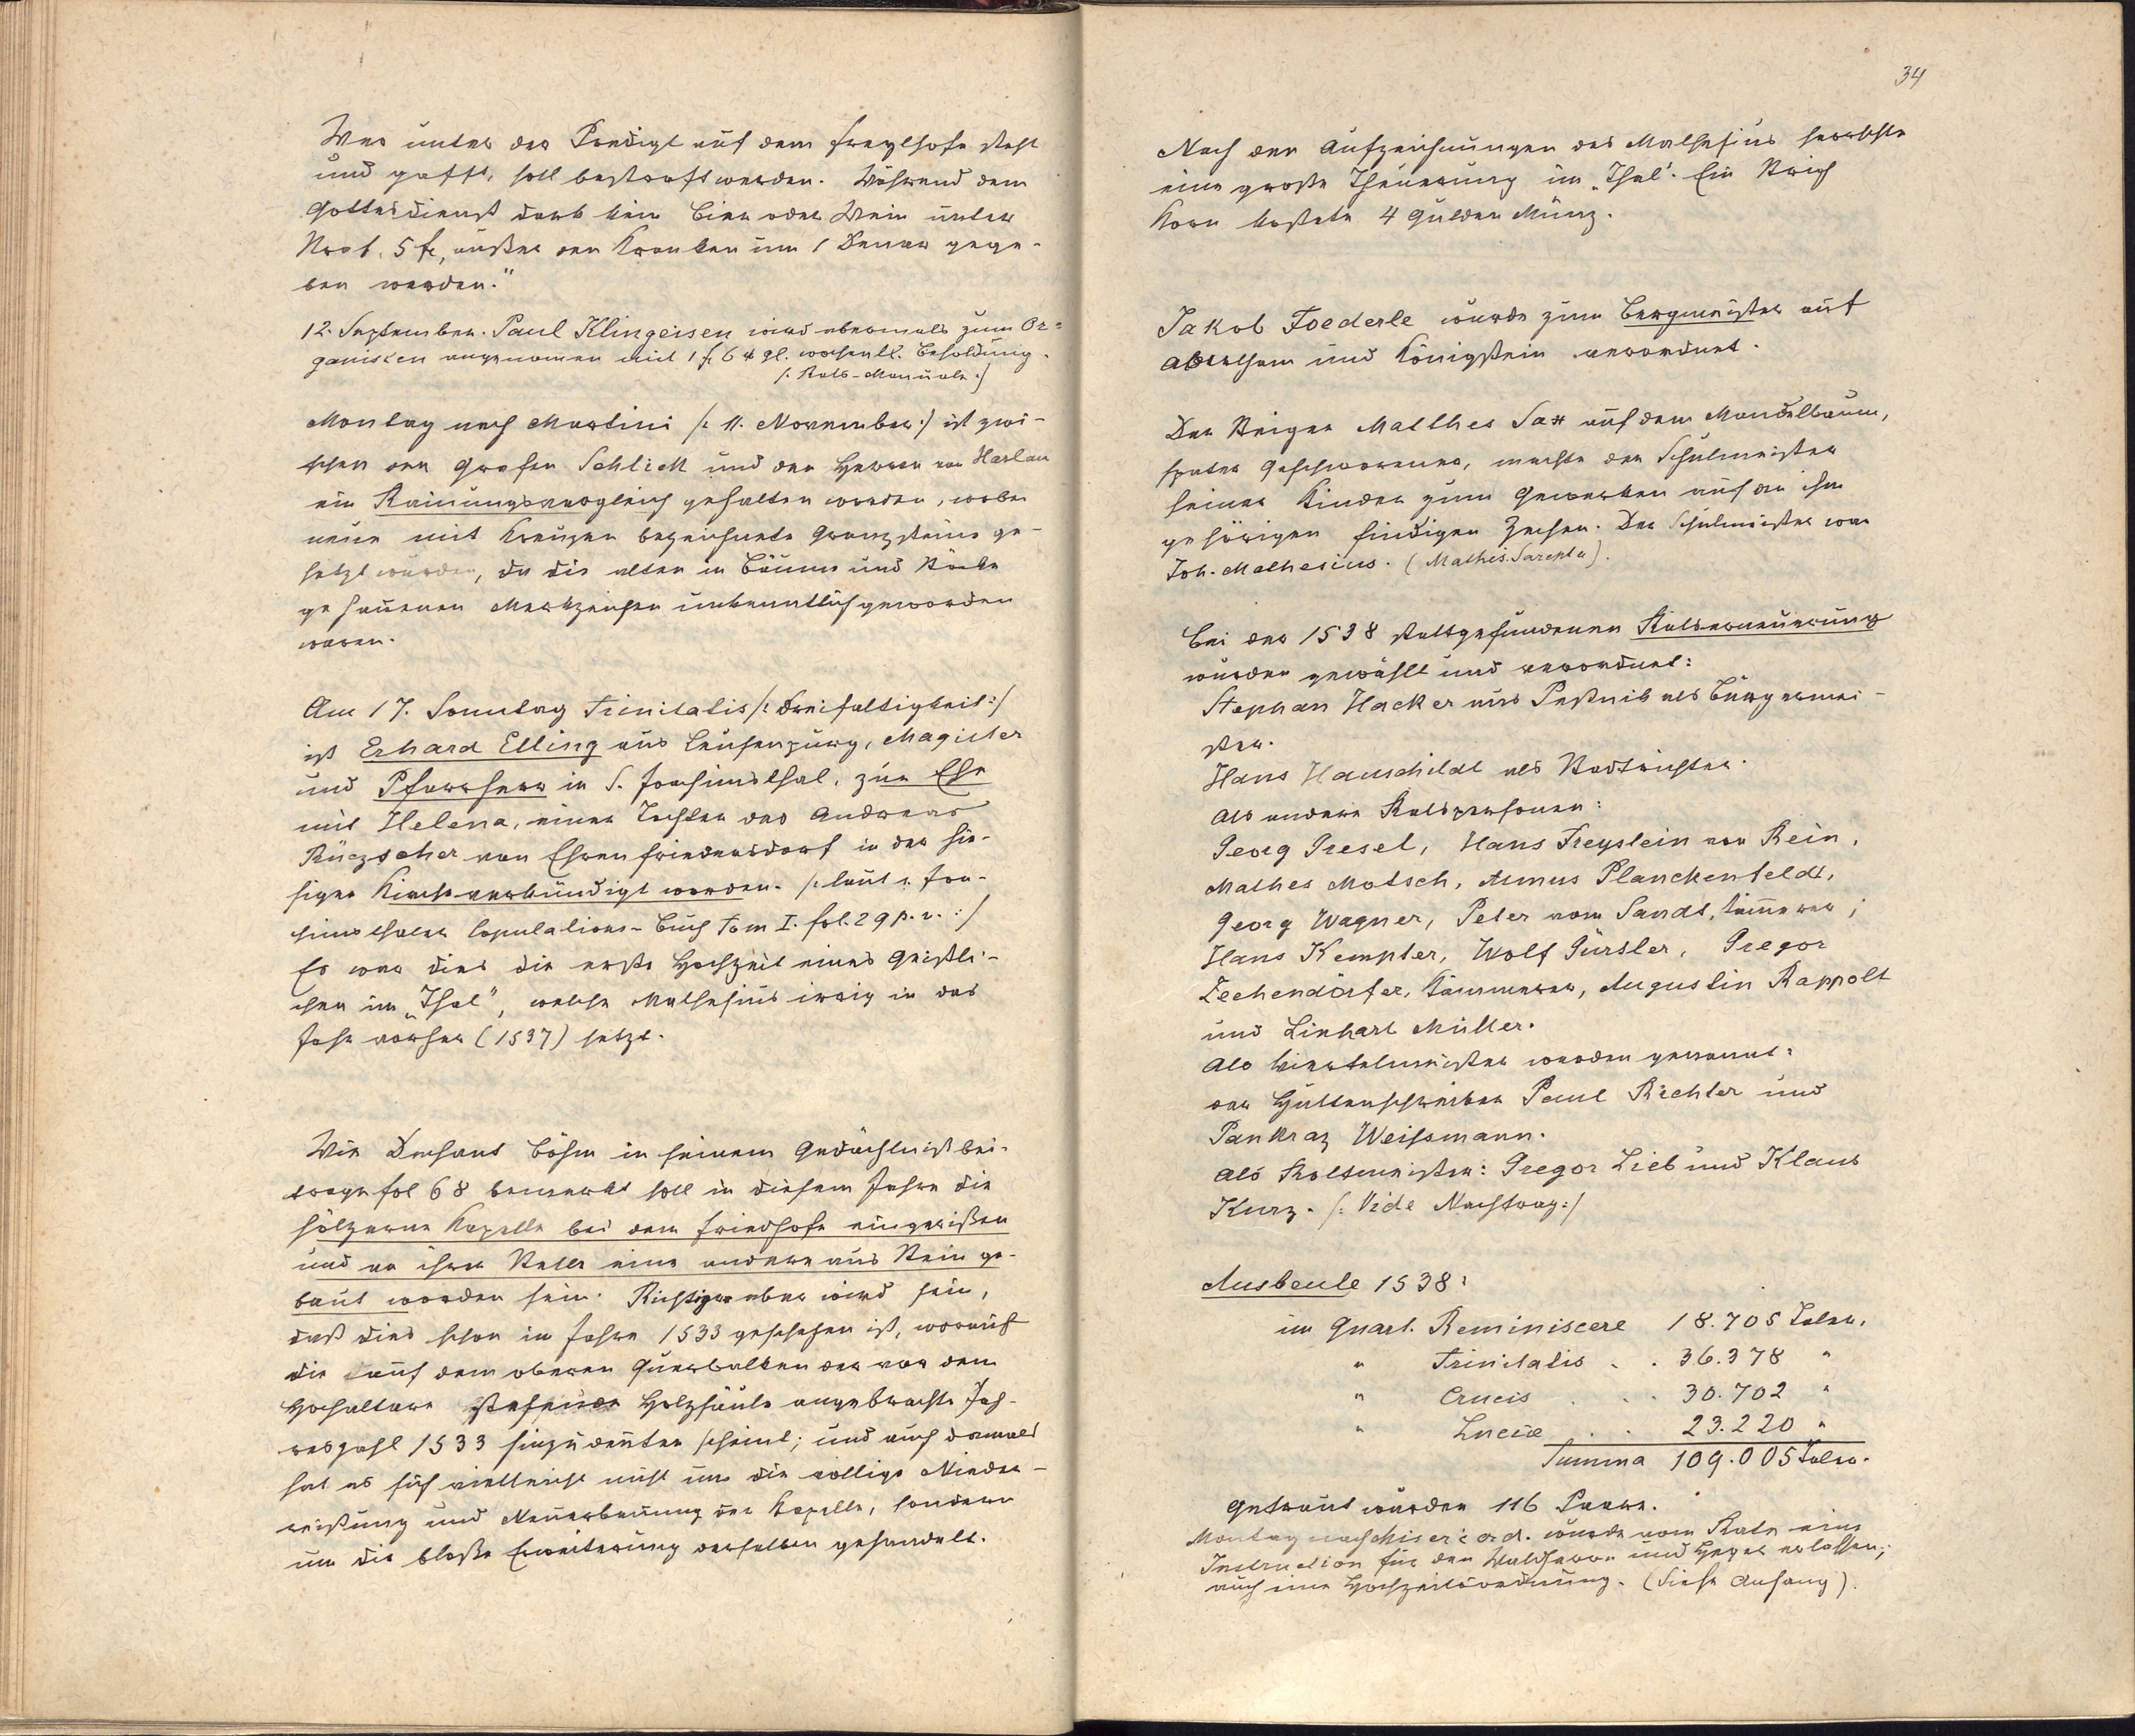 Wer unter der Predigt auf dem Freythofe steht
und gafft, soll bestraft werden. Während dem
Gottesdienst darb kein Bier oder Wein unter
Straf. 5 fl, außer den Kranken um 1 Denar gege-
ben werden."
12. September. Paul Klingeisen wird abermals zum Or=
ganisten angenomen mit 1 fl. 6 w gl. wochentl. Besoldung.
/: Rats-Manuale :/
Montag nach Martini /: 11. November :/ ist zwi-
schen den Grafen Schlick und den Herren von Hartan
ein Rainungsvergleich gehalten worden, wobei
neue mit Kreuzen bezeichnete Granzsteine ge-
setzt wurden, da die alten in Bäume und Stöcke
gehauenen Merkzeichen unkenntlich geworden
waren.
Am 17. Sonntag Trinitatis /: Dreifaltigkeit :/
ist Erhard Elling aus Leusenzurg, Magister
und Pfarrherr in S. Joachimsthal, zur Ehe
mit Helena, einer Tochter des Andreas
Rüczscher von Ehrenfriedersdorf in der hie-
sigen Kirche verkündigt worden. /: laut s. Joa-
chimsthaler Copulations-Buch Tom I. fol. 29 p. v. :/
Es war dies die erste Hochzeit eines Geistli-
chen im „Thal", welche Mathesius irrig in das
Jahr vorher (1537) setzt.
Wie Dechant Böhm in seinem Gedächtnißbei-
trage fol 68 bemerkt soll in diesem Jahre die
hölzerne Kapelle bei dem Friedhofe eingerißen
und an ihrer Stelle eine andere aus Stein ge-
baut worden sein. Richtiger aber wird sein,
daß dies schon im Jahre 1533 geschehen ist, worauf
die auf dem oberen Querbalken der vor dem
Hochaltare stehende Holzsäule angebrachte Jah-
reszahl 1533 hinzudeuten scheint; und auch damals
hat es sich vielleicht nicht um die völlige Nieder-
reißung und Neuerbauung der Kapelle, sondern
um die bloße Erweiterung derselben gehandelt.
34
Nach den Aufzeichnungen des Mathesius herrschte
eine große Theuerung im „Thal". Ein Strich
Korn kostete 4 Gulden Münz.
Jakob Foederle wurde zum Bergmeister auf
Abertham und Königstein verordnet.
Der Steiger Matthes Sax auf dem Mandelbaum,
später Geschworener, machte den Schulmeister
seiner Kinder zum Gewerken auf die ihm
gehörigen findigen Zechen. Der Schulmeister war
Joh. Mathesius. (Mathes. Sarepta).
Bei der 1538 stattgefundenen Ratserneuerung
wurden gewählt und verordnet:
Stephan Hacker aus Peßnik als Bürgermei-
ster.
Hans Hauschildt als Stadtrichter.
Als andere Ratspersonen:
Georg Gresel, Hans Freystein von Rein,
Mathes Motsch, Asmus Planckenfeldt,
Georg Wagner, Peter vom Sandt, Cämmerer;
Hans Kempter, Wolf Gürtler, Gregor
Zechendörfer, Kämmerer, Augustin Rappolt
und Linhart Müller.
Als Viertelmeister werden genannt:
der Hüttenschreiber Paul Richter und
Pankraz Weißmann.
Als Rottmeister: Gregor Lieb und Klaus
Kurz. /: Vide Nachtrag :/
Ausbeute 1538:
im Quart. Reminiscere 18.705 Taler.
" Trinitatis . . 36.378 "
" Crucis . . 30.702 "
" Luciæ . . 23.220 "
Summa 109.005 Taler.
Getraut wurden 116 Paare.
Montag nach Misericord. wurde vom Rate eine
Instruction für den Waldherrn und Heger erlassen;
auch eine Hochzeitsordnung. (Siehe Anhang).